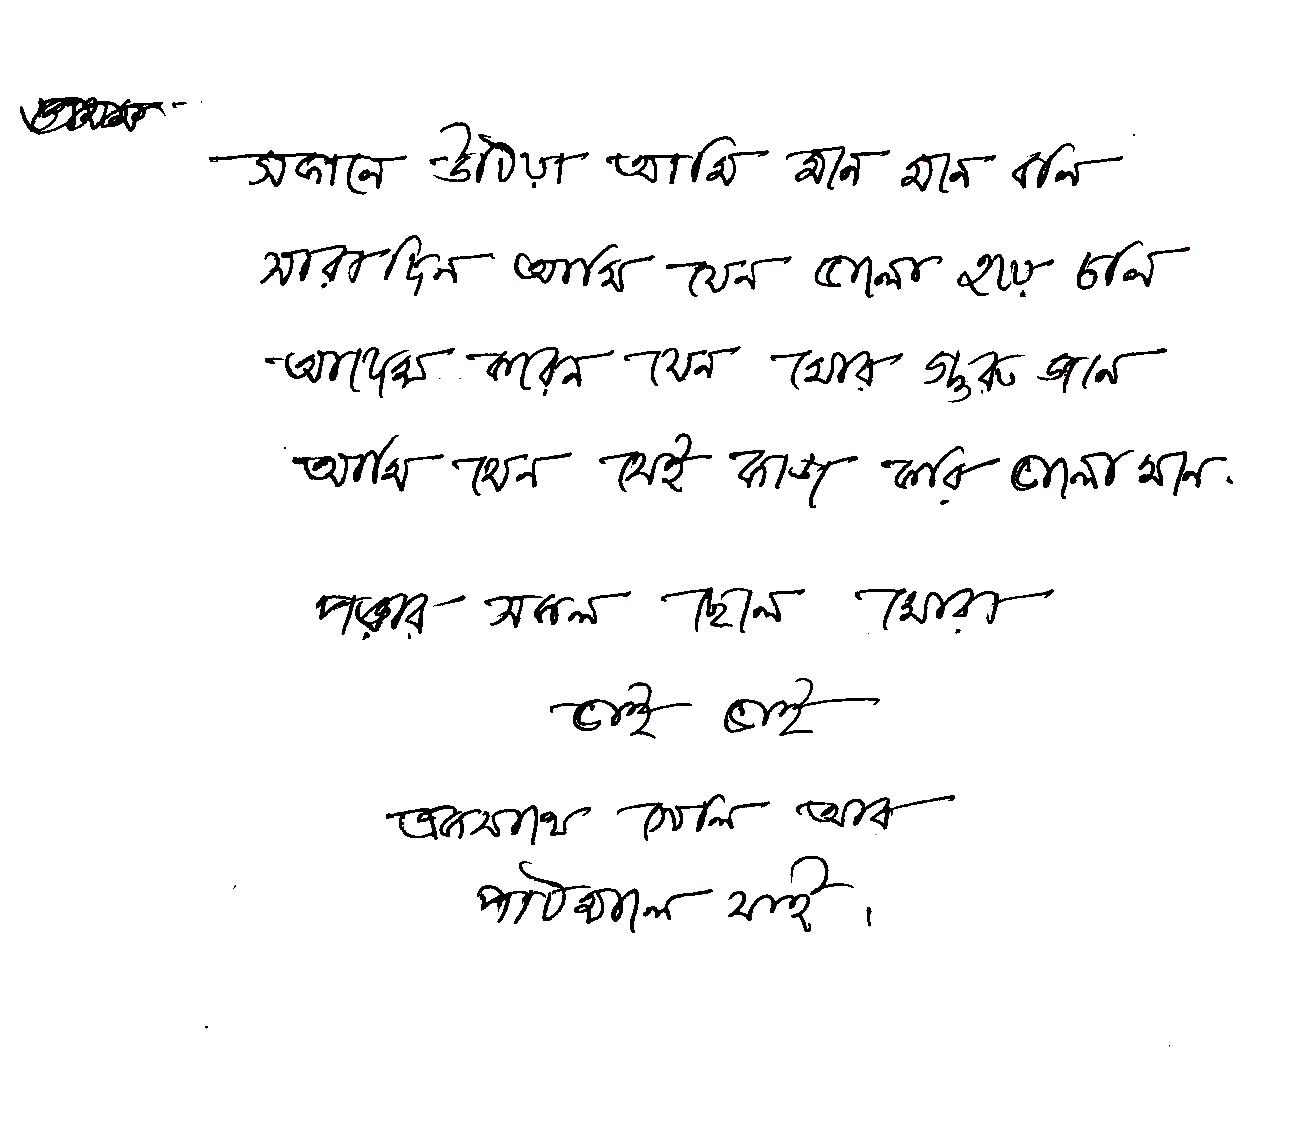 সকালে উঠিয়া আমি মনে মনে বলি
সারাদিন আমি যেন ভালো হয়ে চলি
আদেশ করেন যেন মোর গুরুজনে
আমি যেন সেই কাজ করি ভালো মনে.
পাড়ার সকল ছেলে মোরা
ভাই ভাই
একসাথে খেলি আর
পাঠশালে যাই।